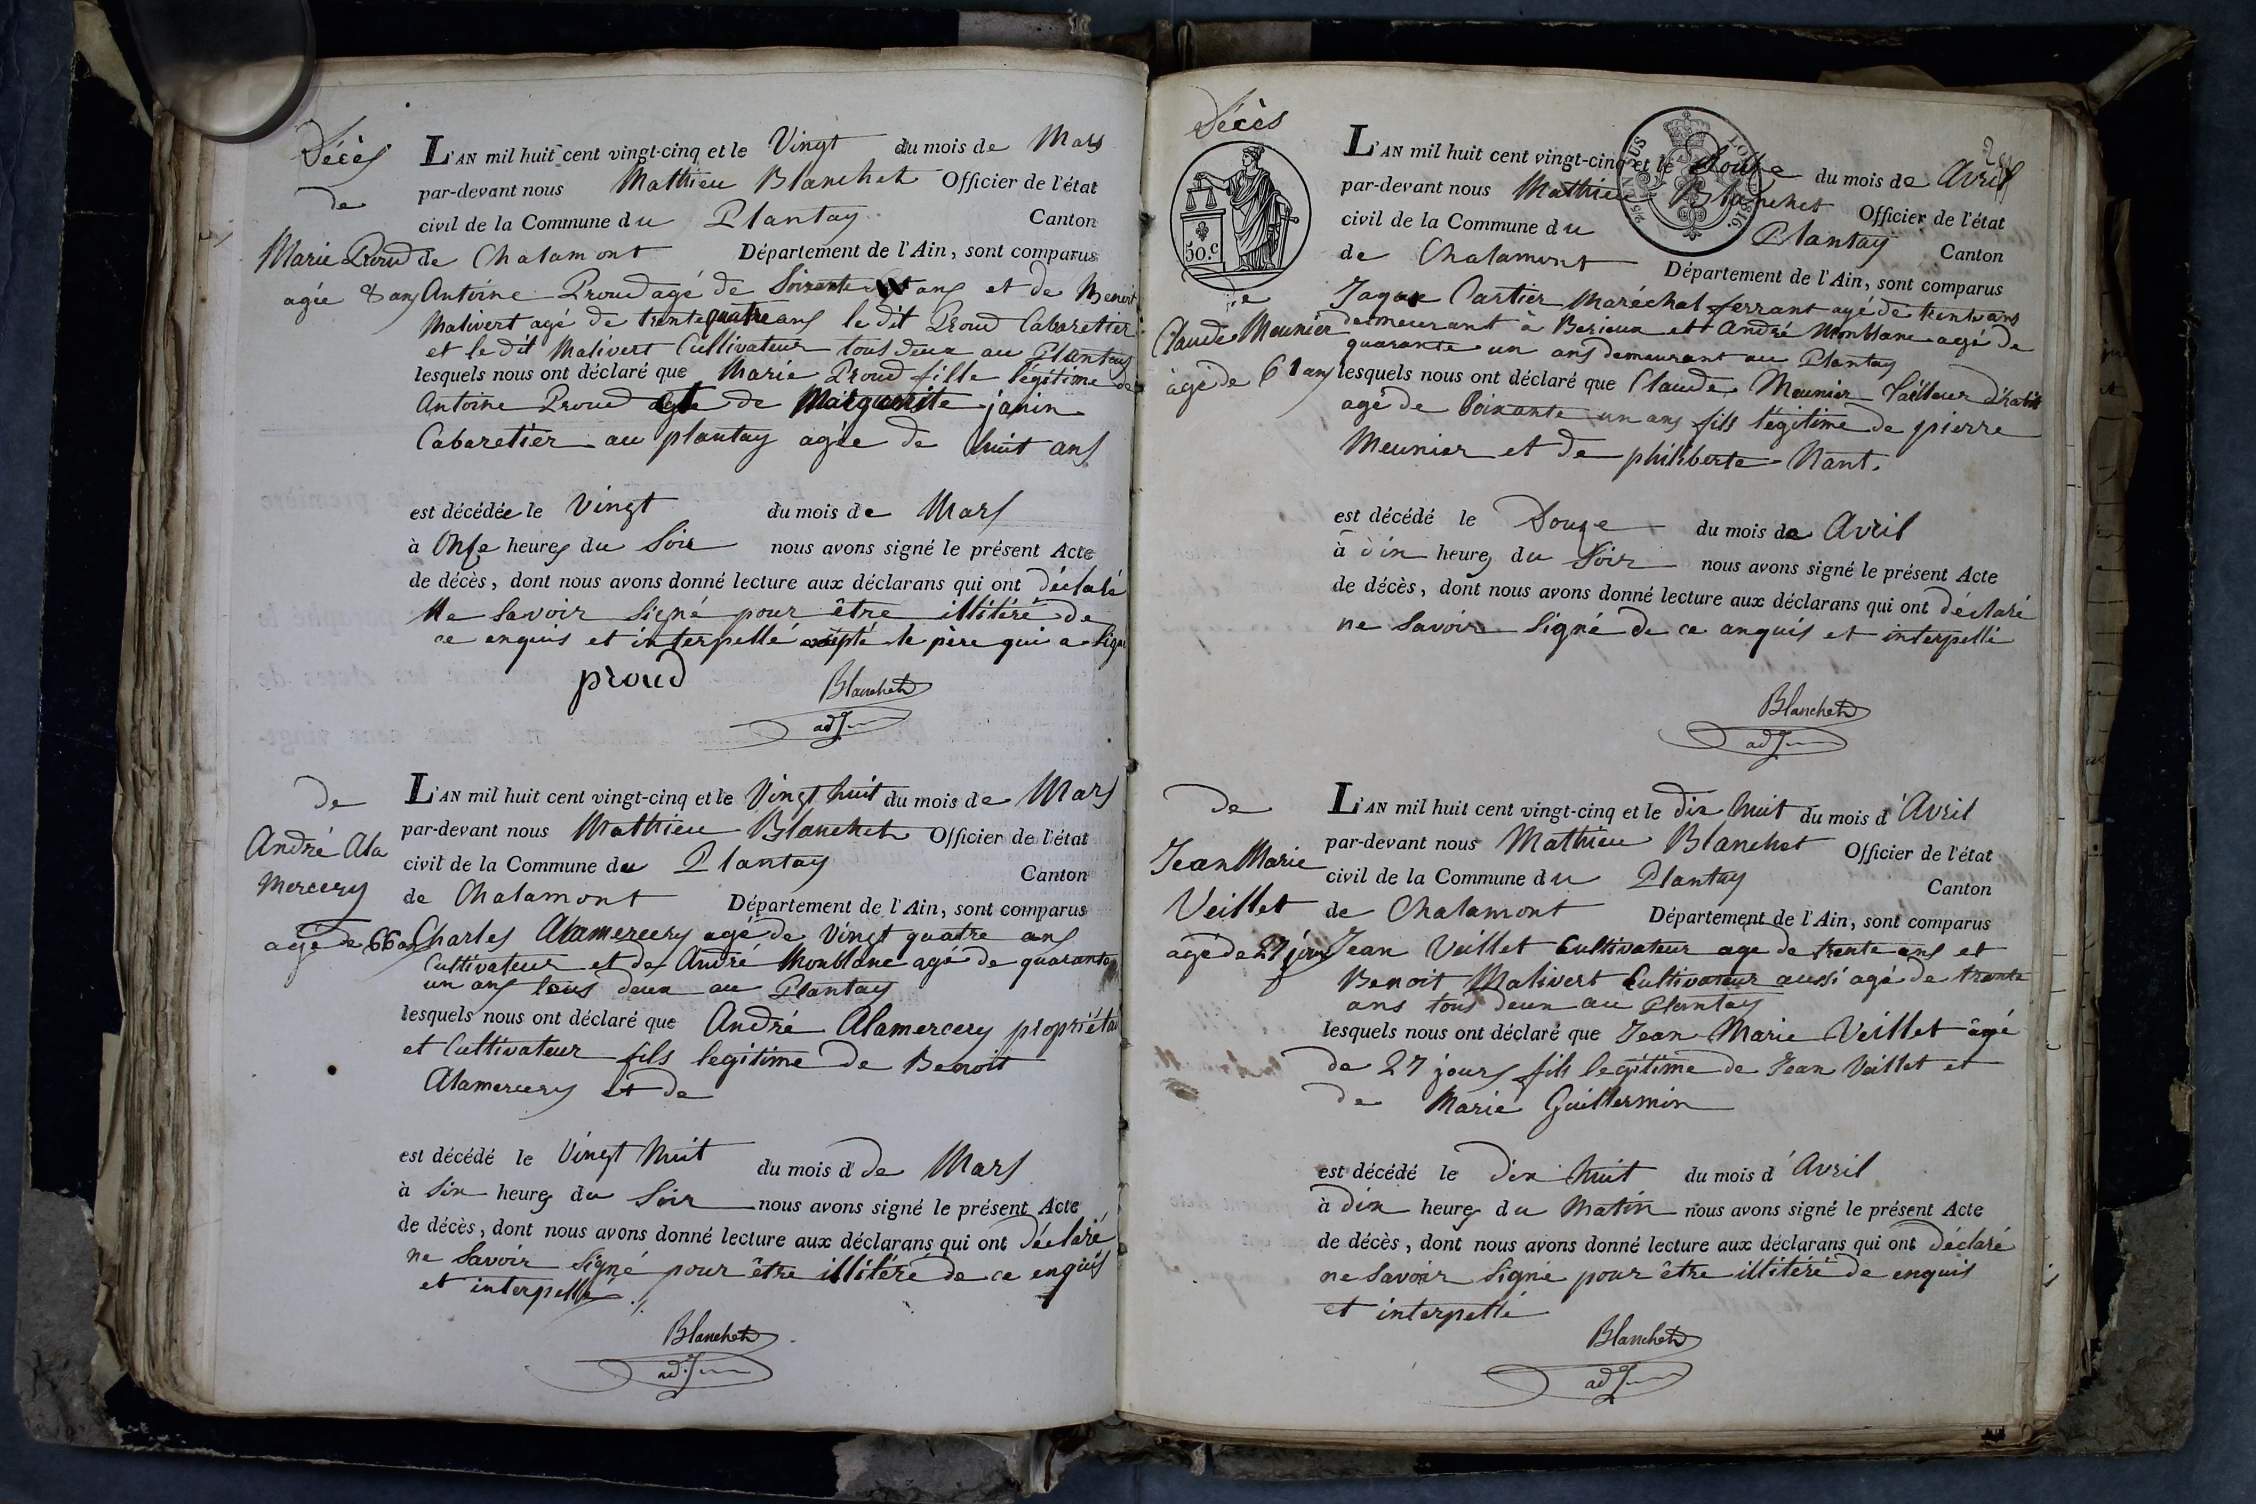 Décès
de
Marie Proud
agée 8 ans
L'AN mil huit cent vingt-cinq et le Vingt du mois de Mars
par-devant nous Mathieu Blanchet Officier de l'état
civil de la Commune du Plantay Canton
de Chalamont Département de l'Ain, sont comparus
Antoine Proud agé de Soixante ans et de Benoit
Malivert agé de trente quatre ans le dit Proud Cabaretier
et le dit Malivert Cultivateur tous deux au Plantay
lesquels nous ont déclaré que Marie Proud fille légitime de
Antoine Proud et de Marguerite janin
Cabaretier au plantay agée de huit ans
est décédée le Vingt du mois de Mars
à Onze heures du Soir nous avons signé le présent Acte
de décès, dont nous avons donné lecture aux déclarans qui ont déclaré
Ne Savoir Signé pour être illitéré de
ce enquis et interpellé le père qui a Signé
proud
Blanchet
adj
de
André Ala
mercery
agé de 66 ans
L'AN mil huit cent vingt-cinq et le Vingt huit du mois de Mars
par-devant nous Mathieu Blanchet Officier de l'état
civil de la Commune du Plantay Canton
de Chalamont Département de l'Ain, sont comparus
Charles Alamercery agé de Vingt quatre ans
Cultivateur et de André Monblanc agé de quarante
un ans tous deux au Plantay
lesquels nous ont déclaré que André Alamercery propriétai
et Cultivateur fils legitime de Benoit
Alamercery et de
est décédé le Vingt huit du mois d de Mars
à Six heures du Soir nous avons signé le présent Acte
de décès, dont nous avons donné lecture aux déclarans qui ont déclaré
ne Savoir Signé pour être illitéré de ce enquis
et interpellé
Blanchet
adj
Décès
50.c
de
Claude Meunier
âgé de 61 ans
L'AN mil huit cent vingt-cinq et le Douze du mois de Avril
par-devant nous Mathieu Blanchet Officier de l'état
civil de la Commune du Plantay Canton
de Chalamont Département de l'Ain, sont comparus
Jaque Cartier Maréchal ferrant agé de trente ans
demeurant à Berieux et André Monblanc agé de
quarante un ans demeurant au Plantay
lesquels nous ont déclaré que Claude Meunier Tailleur D'habit
agé de Soixante un ans fils légitime de pierre
Meunier et de philiberte Nant.
est décédé le Douze du mois de Avril
à dix heures du Soir nous avons signé le présent Acte
de décès, dont nous avons donné lecture aux déclarans qui ont déclaré
ne Savoir Signé de ce anquis et interpellé
Blanchet
adj
de
Jean Marie
Veillet
agé de 27 jours
L'AN mil huit cent vingt-cinq et le dix huit du mois d'Avril
par-devant nous Mathieu Blanchet Officier de l'état
civil de la Commune du Plantay Canton
de Chalamont Département de l'Ain, sont comparus
Jean Veillet Cultivateur age de trente ans et
Benoit Malivert Cultivateur aussi agé de trente
ans tous deux au Plantay
lesquels nous ont déclaré que Jean Marie Veillet âgé
de 27 jours fils legitime de Jean Veillet et
de Marie Guillermin
est décédé le dix huit du mois d'Avril
à Dix heures du Matin nous avons signé le présent Acte
de décès, dont nous avons donné lecture aux déclarans qui ont déclaré
ne Savoir Signé pour être illitéré de enquis
et interpellé
Blanchet
adj